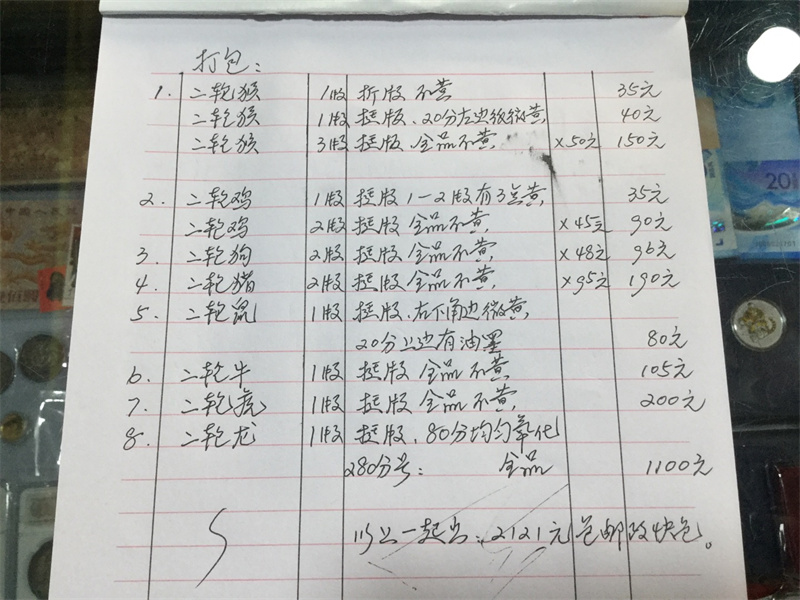 打包：
1. 二轮猴 1版 折版 不黄 35元
二轮猴 1版 挺版、20分左边微微黄, 40元
二轮猴 3版 挺版 全品不黄, ×50元 150元
2. 二轮鸡 1版 挺版 1-2版有3点黄, 35元
二轮鸡 2版 挺版 全品不黄, ×45元 90元
3. 二轮狗 2版 挺版 全品不黄, ×48元 96元
4. 二轮猪 2版 挺版 全品不黄, ×95元 190元
5. 二轮鼠 1版 挺版、右下角边微黄,
20分上边有油墨 80元
6. 二轮牛 1版 挺版 全品不黄, 105元
7. 二轮虎 1版 挺版 全品不黄, 200元
8. 二轮龙 1版 挺版、80分均匀氧化
280分号： 全品 1100元
以上一起出：2121元包邮政快包。
20